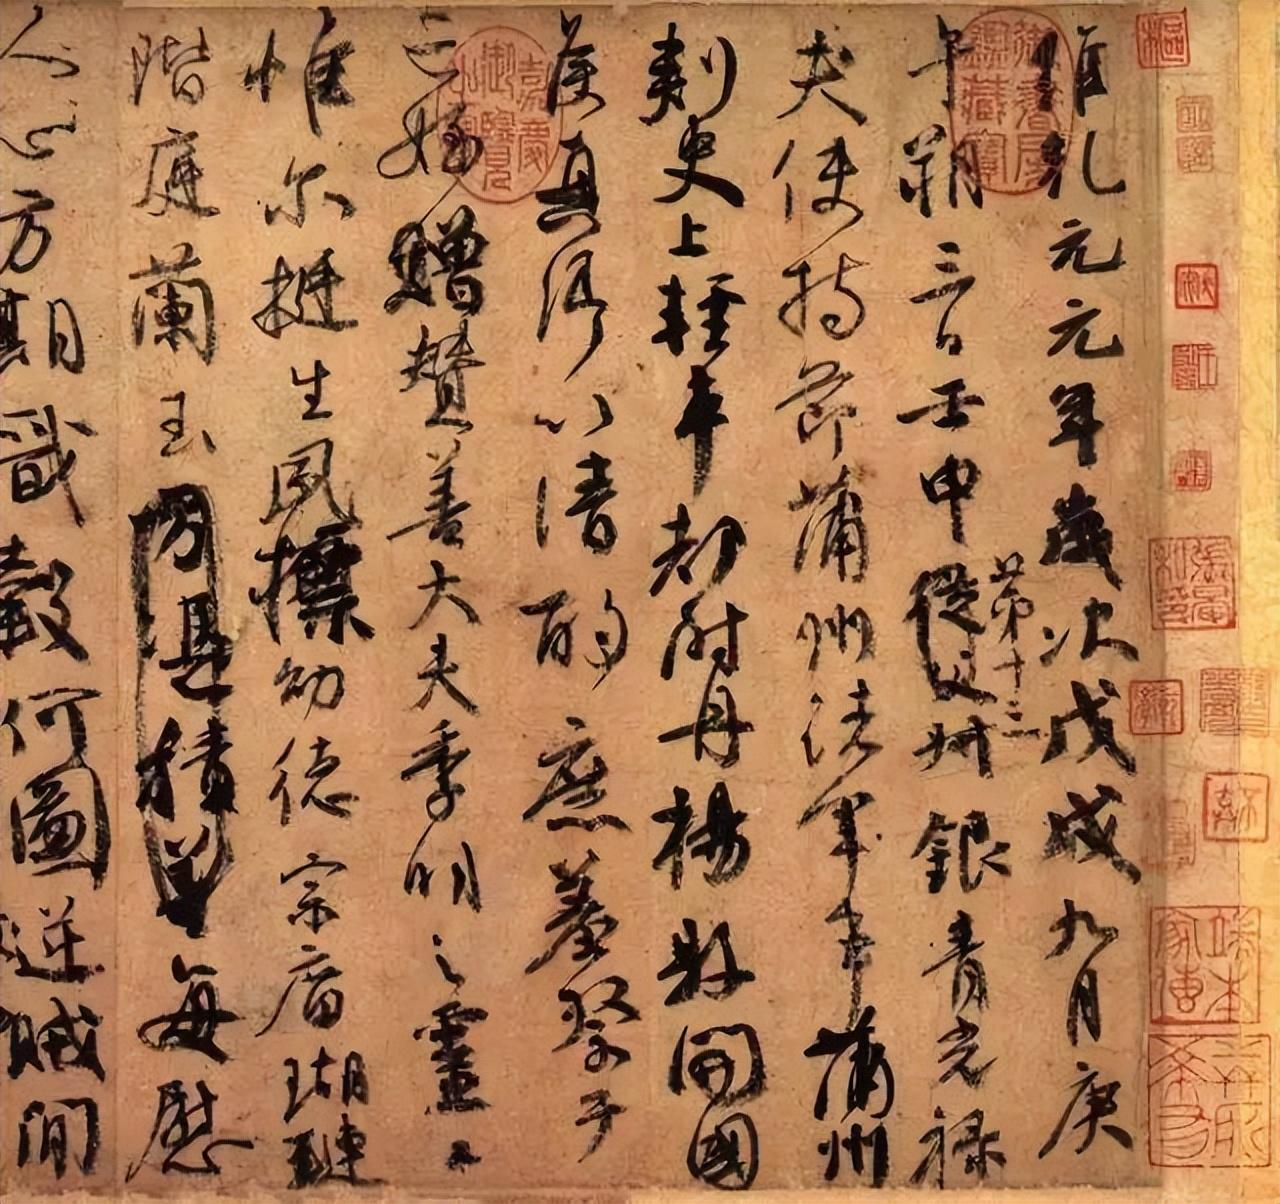 維乾元元年歲次戊戌九月庚
午朔三日壬申從父第十三叔銀青光祿
夫使持節蒲州諸軍事蒲州
刺史上輕車都尉丹楊縣開國
侯真卿以清酌庶羞祭于
亡姪贈贊善大夫季明之靈
惟爾挺生夙標幼德宗廟瑚璉
階庭蘭玉方憑積善每慰
人心方期戩穀何圖逆賊閒